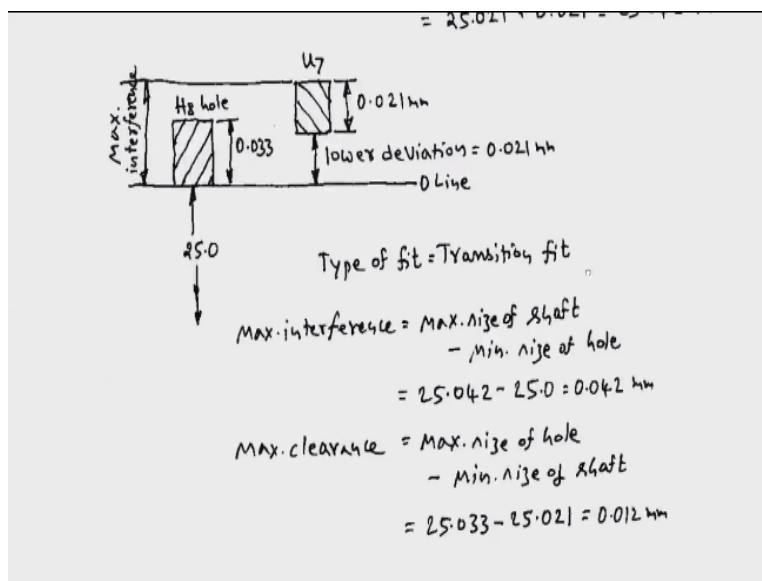 = 25.021 + 0.021 =
U7
H8 hole
0.021mm
max. interference
0.033
lower deviation = 0.021mm
0 Line
25.0
Type of fit = Transition fit
Max. interference = Max. size of shaft
- Min. size of hole
= 25.042 - 25.0 = 0.042 mm
Max. clearance = Max. size of hole
- Min. size of shaft
= 25.033 - 25.021 = 0.012 mm